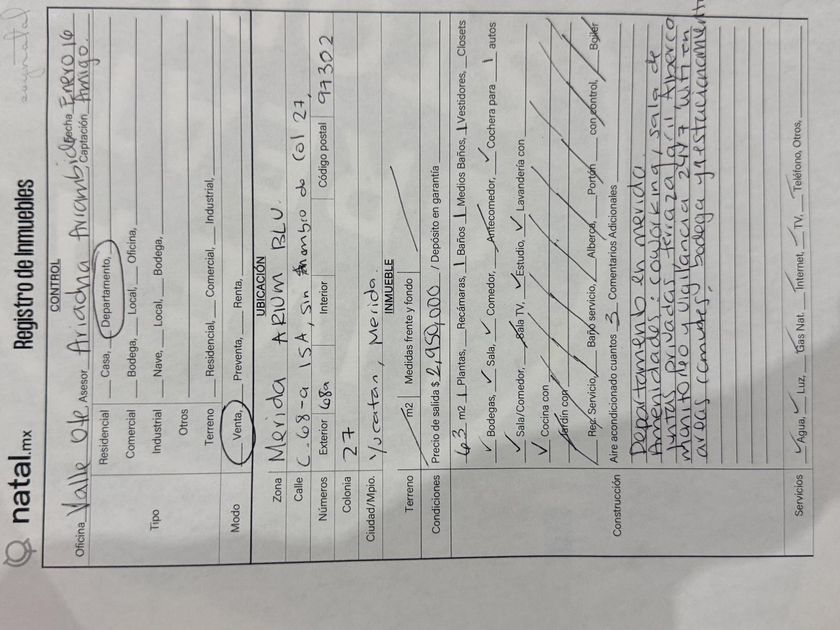 natal.mx Registro de Inmuebles
CONTROL
Oficina Valle Ote Asesor Ariadna Fecha Enero 16
Captación Amigo.
Tipo
Residencial Casa, Departamento,
Comercial Bodega, Local, Oficina,
Industrial Nave, Local, Bodega,
Otros
Terreno Residencial, Comercial, Industrial,
Modo Venta, Preventa, Renta,
UBICACIÓN
Zona Merida ARIUM BLU.
Calle C. 68-a 15A, sin nombre de Col 27,
Números Exterior 68a Interior Código postal 97302
Colonia 27
Ciudad/Mpio. Yucatan, Merida.
INMUEBLE
Terreno m2 Medidas frente y fondo
Condiciones Precio de salida $ 2,950,000 / Depósito en garantía
Construcción
63 m2 1 Plantas, Recámaras, 1 Baños 1 Medios Baños, 1 Vestidores, Closets
Bodegas, Sala, Comedor, Antecomedor, Cochera para 1 autos
Sala/Comedor, Sala TV, Estudio, Lavandería con
Cocina con
Jardín con
Rec. Servicio, Baño servicio, Alberca, Portón con control, Boiler
Aire acondicionado cuantos 3 Comentarios Adicionales
Departamento en merida
Amenidades: coworking, sala de
Juntas privadas terraza, Alberca
monitoreo y vigilancia 24/7 wifi en
areas comunes, bodega y estacionamiento
Servicios Agua, Luz, Gas Nat. Internet, TV, Teléfono, Otros,